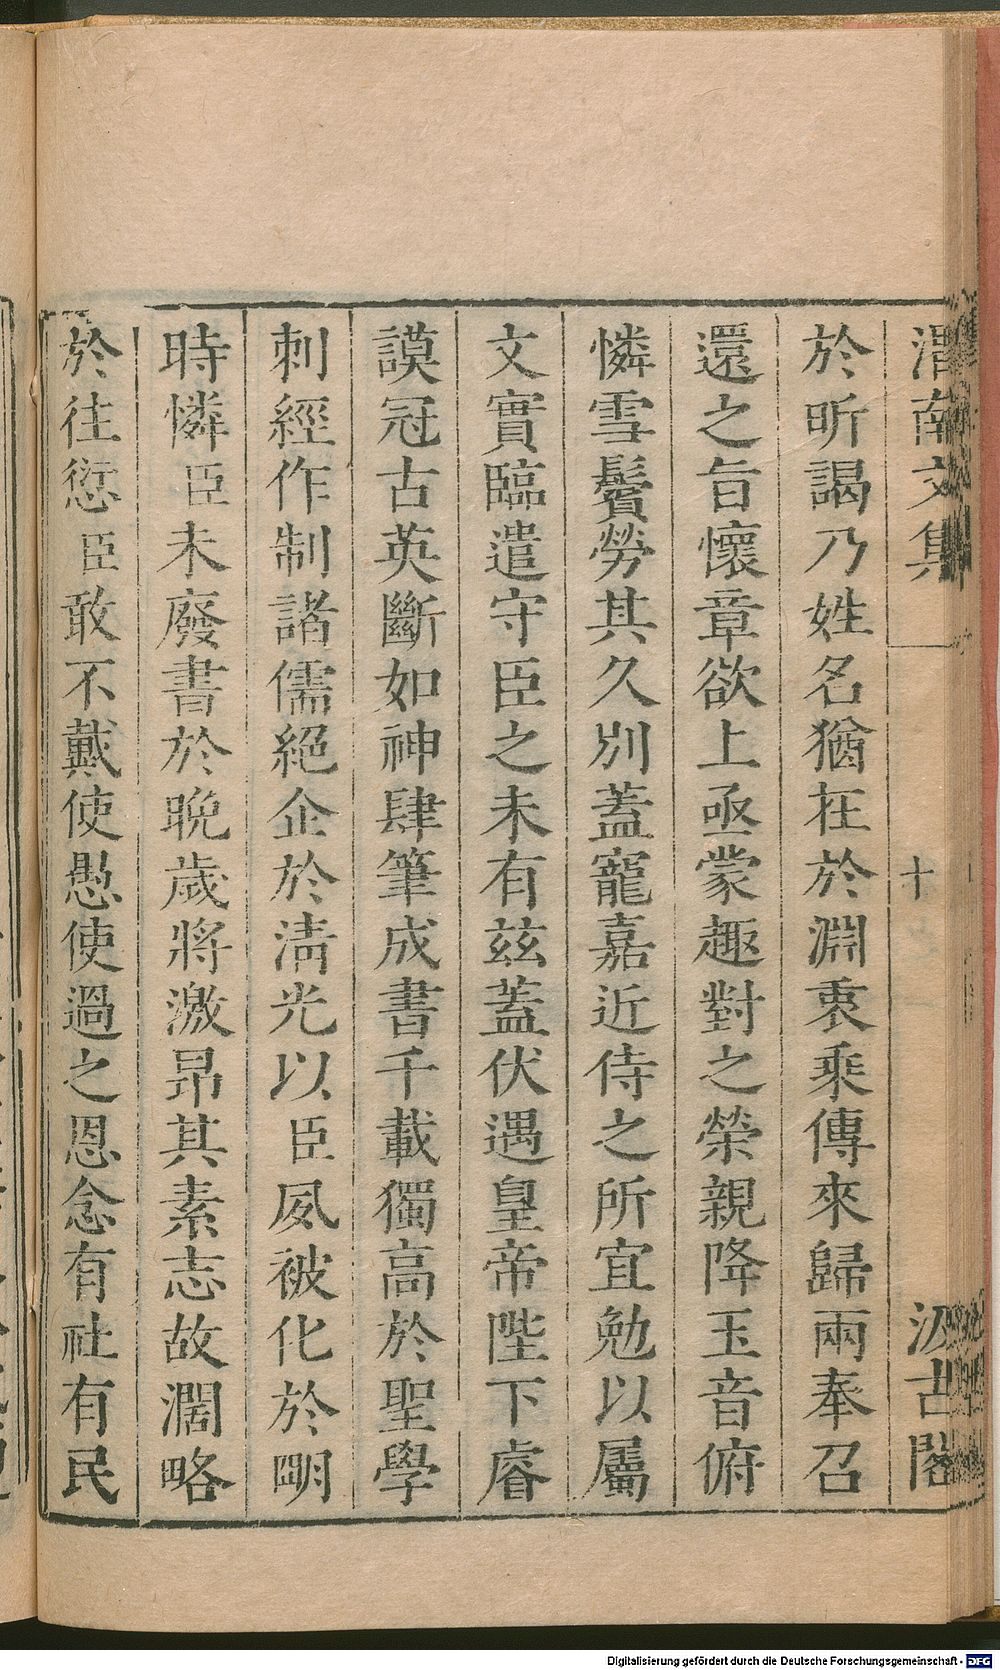 渭南文集
十
汲古閣
於昕謁乃姓名猶在於淵衷乘傳來歸兩奉召
還之旨懷章欲上亟蒙趣對之榮親降玉音俯
憐雪鬢勞其久別蓋寵嘉近侍之所宜勉以屬
文實臨遣守臣之未有茲蓋伏遇皇帝陛下睿
謨冠古英斷如神肆筆成書千載獨高於聖學
刺經作制諸儒絕企於清光以臣夙被化於明
時憐臣未廢書於晚歲將激昂其素志故濶略
於往愆臣敢不戴使愚使過之恩念有社有民
Digitalisierung gefördert durch die Deutsche Forschungsgemeinschaft - DFG